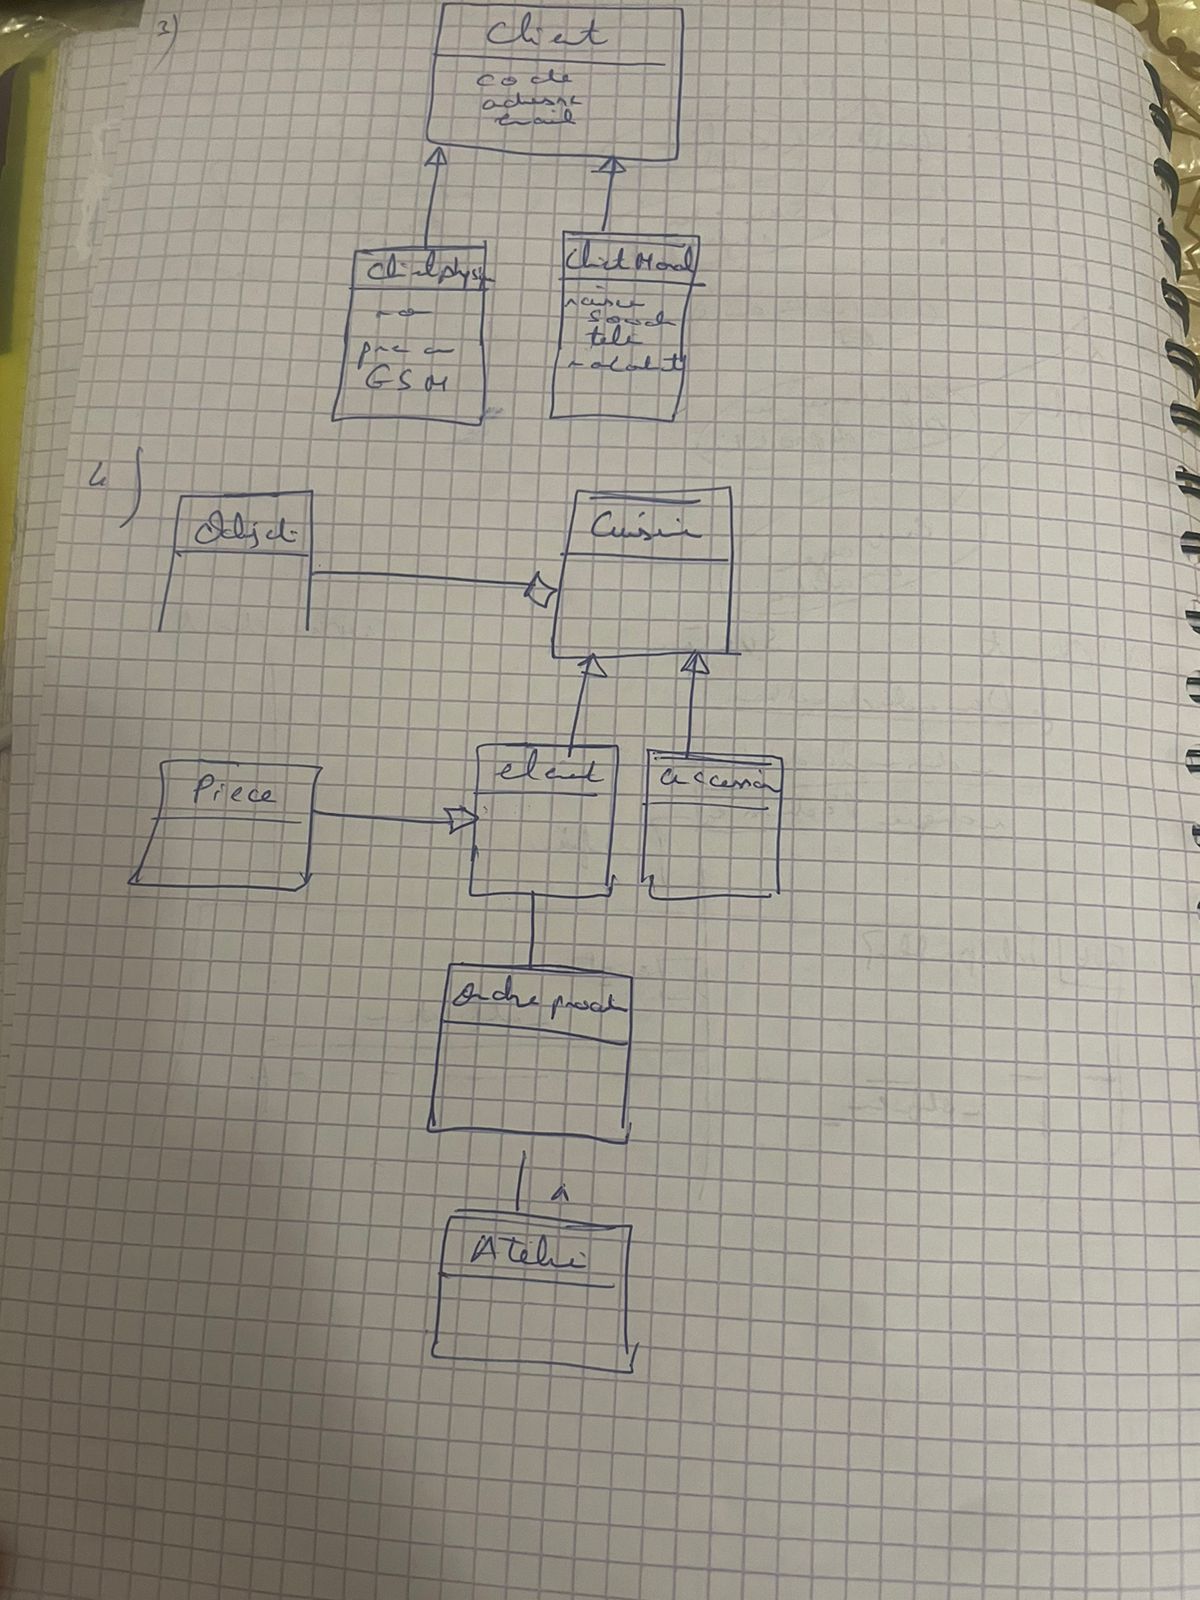 3)
Client
code
adresse
email
Client physi
Client Moral
GSM
raison
social
tele
4)
Objet
Cuisine
Piece
element
accessoir
Ordre prod
Atelier